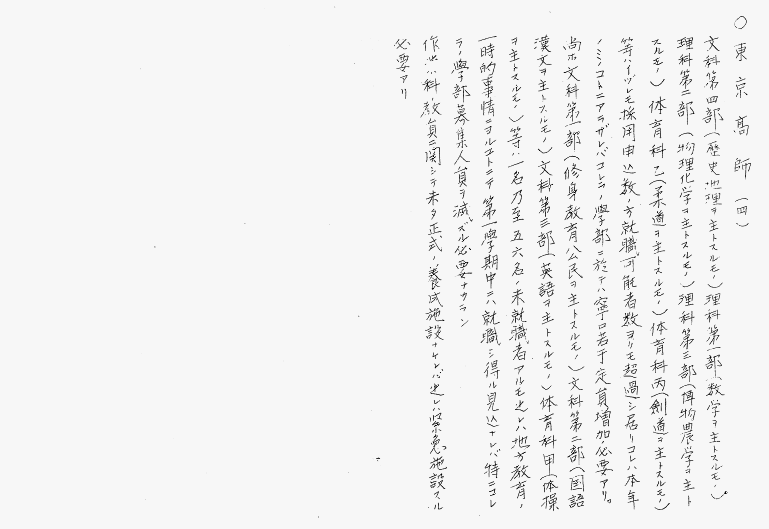 ○東京高師(四)
文科第四部(歴史地理ヲ主トスルモノ)理科第一部(数学ヲ主トスルモノ)
理科第二部(物理化学ヲ主トスルモノ)理科第三部(博物農学ヲ主ト
スルモノ)体育科乙(柔道ヲ主トスルモノ)体育科丙(剣道ヲ主トスルモノ)
等ハイヅレモ採用申込数ノ方就職可能者数ヨリモ超過シ居リコレハ本年
ノミノコトニアラザレバコレラノ學部ニ於テハ寧ロ若干定員増加ノ必要アリ。
尚ホ文科第一部(修身教育公民ヲ主トスルモノ)文科第二部(国語
漢文ヲ主トスルモノ)文科第三部(英語ヲ主トスルモノ)体育科甲(体操
ヲ主トスルモノ)等ハ一名乃至五六名ノ未就職者アルモ之レハ地方教育ノ
一時的事情ニヨルコトニテ第一學期中ニハ就職シ得ル見込ナレバ特ニコレ
ラノ學部募集人員ヲ減ズル必要ナカラン
作業科教員ニ関シテ未タ正式ノ養成施設ナケレバ之レハ緊急施設スル
必要アリ